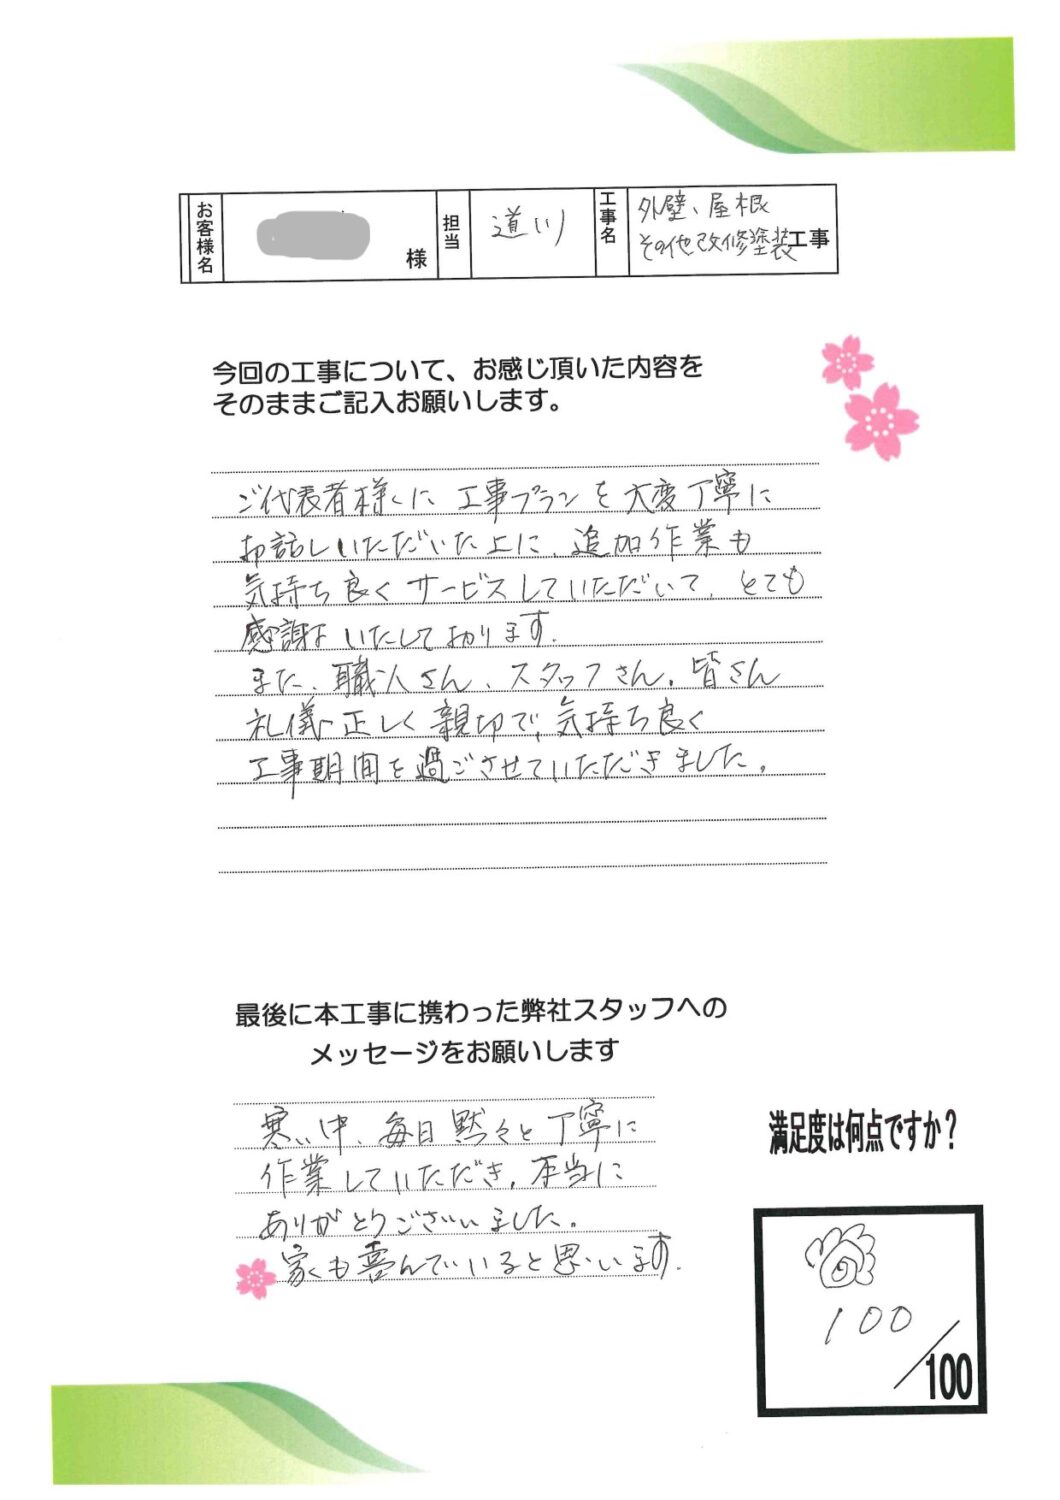 お客様名 様 担当 道川 工事名 外壁、屋根
その他改修塗装工事
今回の工事について、お感じ頂いた内容を
そのままご記入お願いします。
ご代表者様に工事プランを大変丁寧に
お話しいただいた上に、追加作業も
気持ち良くサービスしていただいて、とても
感謝いたしております。
また、職人さん、スタッフさん、皆さん
礼儀正しく親切で、気持ち良く
工事期間を過ごさせていただきました。
最後に本工事に携わった弊社スタッフへの
メッセージをお願いします
寒い中、毎日黙々と丁寧に
作業していただき、本当に
ありがとうございました。
家も喜んでいると思います。
満足度は何点ですか？
100
/100